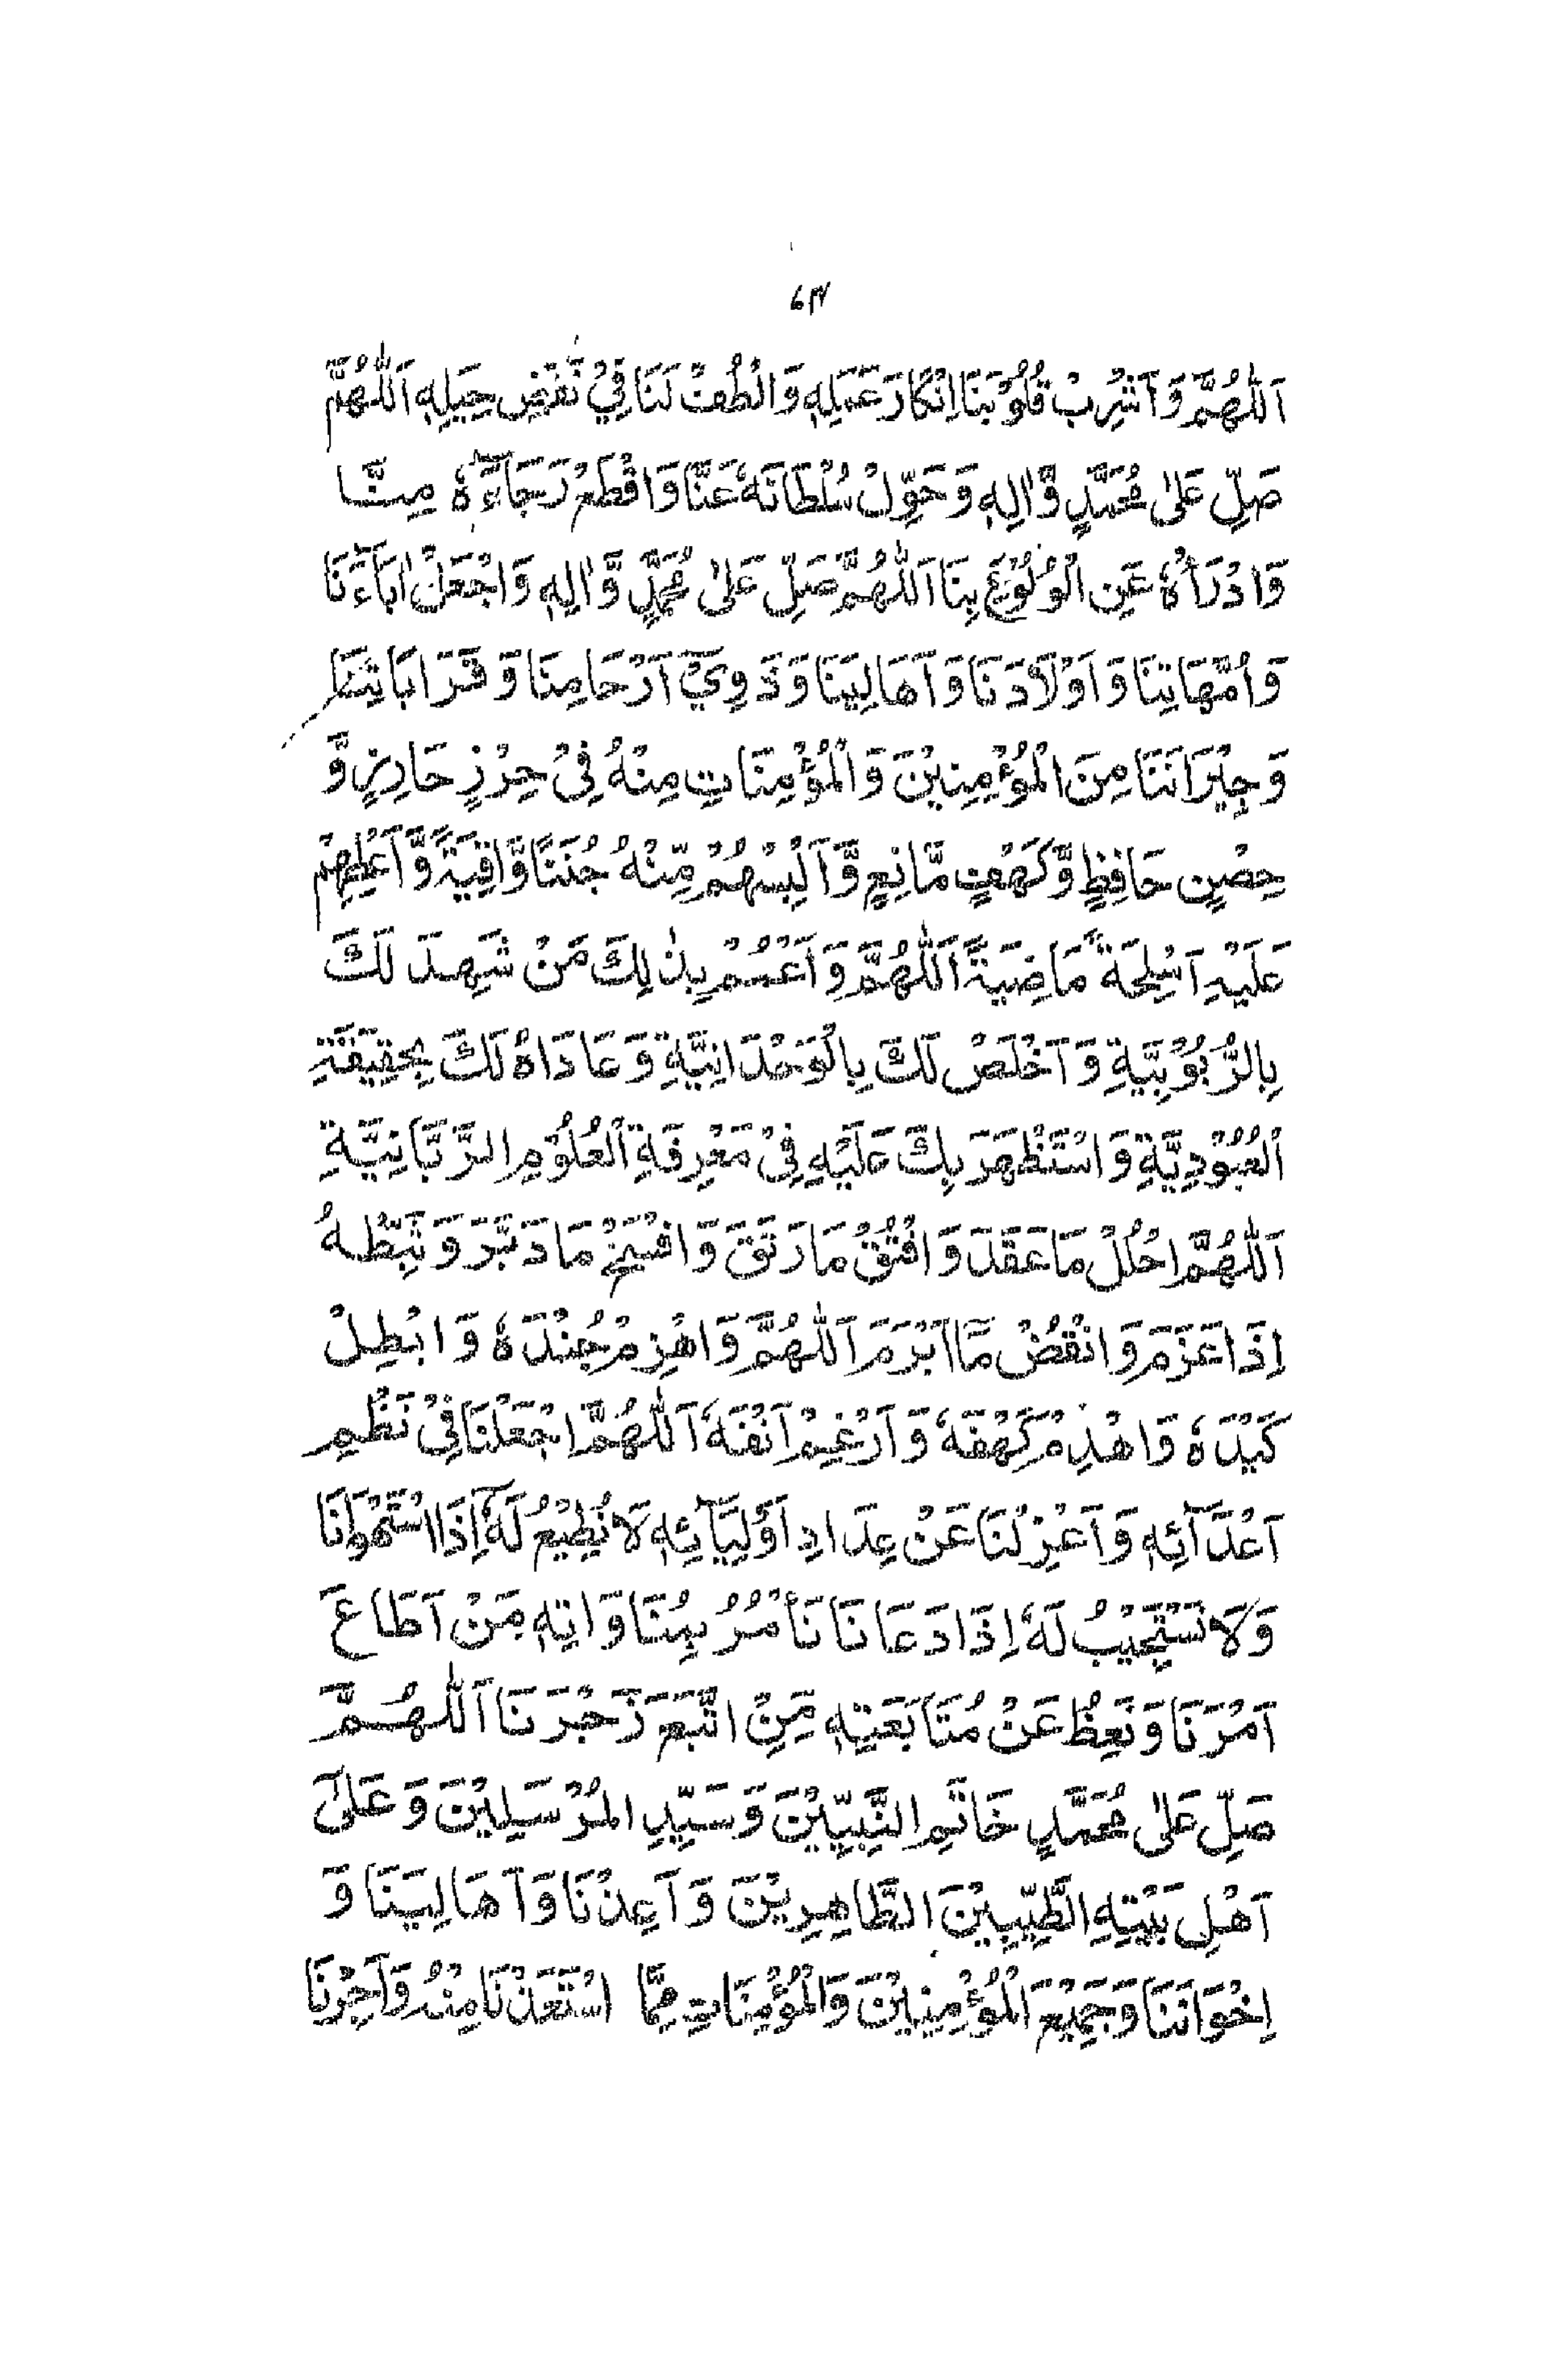 ۶۴
اَللّٰهُمَّ وَ اَشْرِبْ قُلُوْبَنَا اِنْكَارَ عَمَلِهٖ وَ الْطُفْ لَنَا فِيْ نَقْضِ حِيَلِهٖ اَللّٰهُمَّ
صَلِّ عَلٰى مُحَمَّدٍ وَّاٰلِهٖ وَ حَوِّلْ سُلْطَانَهٗ عَنَّا وَ اقْطَعْ رَجَآءَهٗ مِنَّا
وَ ادْرَأْهُ عَنِ الْوُلُوْعِ بِنَا اَللّٰهُمَّ صَلِّ عَلٰى مُحَمَّدٍ وَّاٰلِهٖ وَ اجْعَلْ اٰبَآءَنَا
وَ اُمَّهَاتِنَا وَ اَوْلَادَنَا وَ اَهَالِيَنَا وَ ذَوِيْ اَرْحَامِنَا وَ قَرَابَاتِنَا
وَ جِيْرَانَنَا مِنَ الْمُؤْمِنِيْنَ وَ الْمُؤْمِنَاتِ مِنْهُ فِيْ حِرْزٍ حَارِزٍ وَّ
حِصْنٍ حَافِظٍ وَّ كَهْفٍ مَّانِعٍ وَّ اَلْبِسْهُمْ مِّنْهُ جُنَنًا وَّاقِيَةً وَّ اَعْطِهِمْ
عَلَيْهِ اَسْلِحَةً مَاضِيَةً اَللّٰهُمَّ وَ اعْمُمْ بِذٰلِكَ مَنْ شَهِدَ لَكَ
بِالرُّبُوْبِيَّةِ وَ اَخْلَصَ لَكَ بِالْوَحْدَانِيَّةِ وَ عَادَاهُ لَكَ بِحَقِيْقَةِ
الْعُبُوْدِيَّةِ وَ اسْتَظْهَرَ بِكَ عَلَيْهِ فِيْ مَعْرِفَةِ الْعُلُوْمِ الرَّبَّانِيَّةِ
اَللّٰهُمَّ احْلُلْ مَا عَقَدَ وَ افْتُقْ مَا رَتَقَ وَ افْسَخْ مَا دَبَّرَ وَ ثَبِّطْهُ
اِذَا عَزَمَ وَ انْقُضْ مَّا اَبْرَمَ اَللّٰهُمَّ وَ اهْزِمْ جُنْدَهٗ وَ ابْطِلْ
كَيْدَهٗ وَ اهْدِمْ كَهْفَهٗ وَ اَرْغِمْ اَنْفَهٗ اَللّٰهُمَّ اجْعَلْنَا فِيْ نَظْمِ
اَعْدَآئِهٖ وَ اَعْزِلْنَا عَنْ عِدَادِ اَوْلِيَآئِهٖ لَا نُطِيْعُ لَهٗٓ اِذَا اسْتَهْوَانَا
وَ لَا نَسْتَجِيْبُ لَهٗ اِذَا دَعَانَا نَأْمُرُ بِمُنَاوَاتِهٖ مَنْ اَطَاعَ
اَمْرَنَا وَ نَعِظُ عَنْ مُتَابَعَتِهٖ مَنِ اتَّبَعَ زَجْرَنَا اَللّٰهُمَّ
صَلِّ عَلٰى مُحَمَّدٍ خَاتَمِ النَّبِيِّيْنَ وَ سَيِّدِ الْمُرْسَلِيْنَ وَ عَلٰٓى
اَهْلِ بَيْتِهِ الطَّيِّبِيْنَ الطَّاهِرِيْنَ وَ اَعِذْنَا وَ اَهَالِيَنَا وَ
اِخْوَانَنَا وَ جَمِيْعَ الْمُؤْمِنِيْنَ وَ الْمُؤْمِنَاتِ مِمَّا اسْتَعَذْنَا مِنْهُ وَ اَجِرْنَا